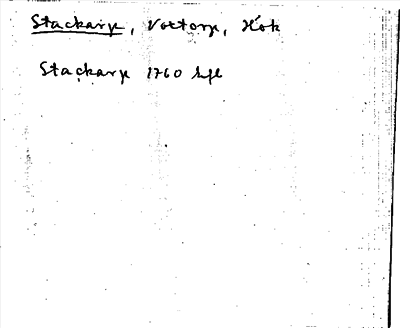 Stackarp, Voxtorp, Hök
Stackarp 1760 hfl